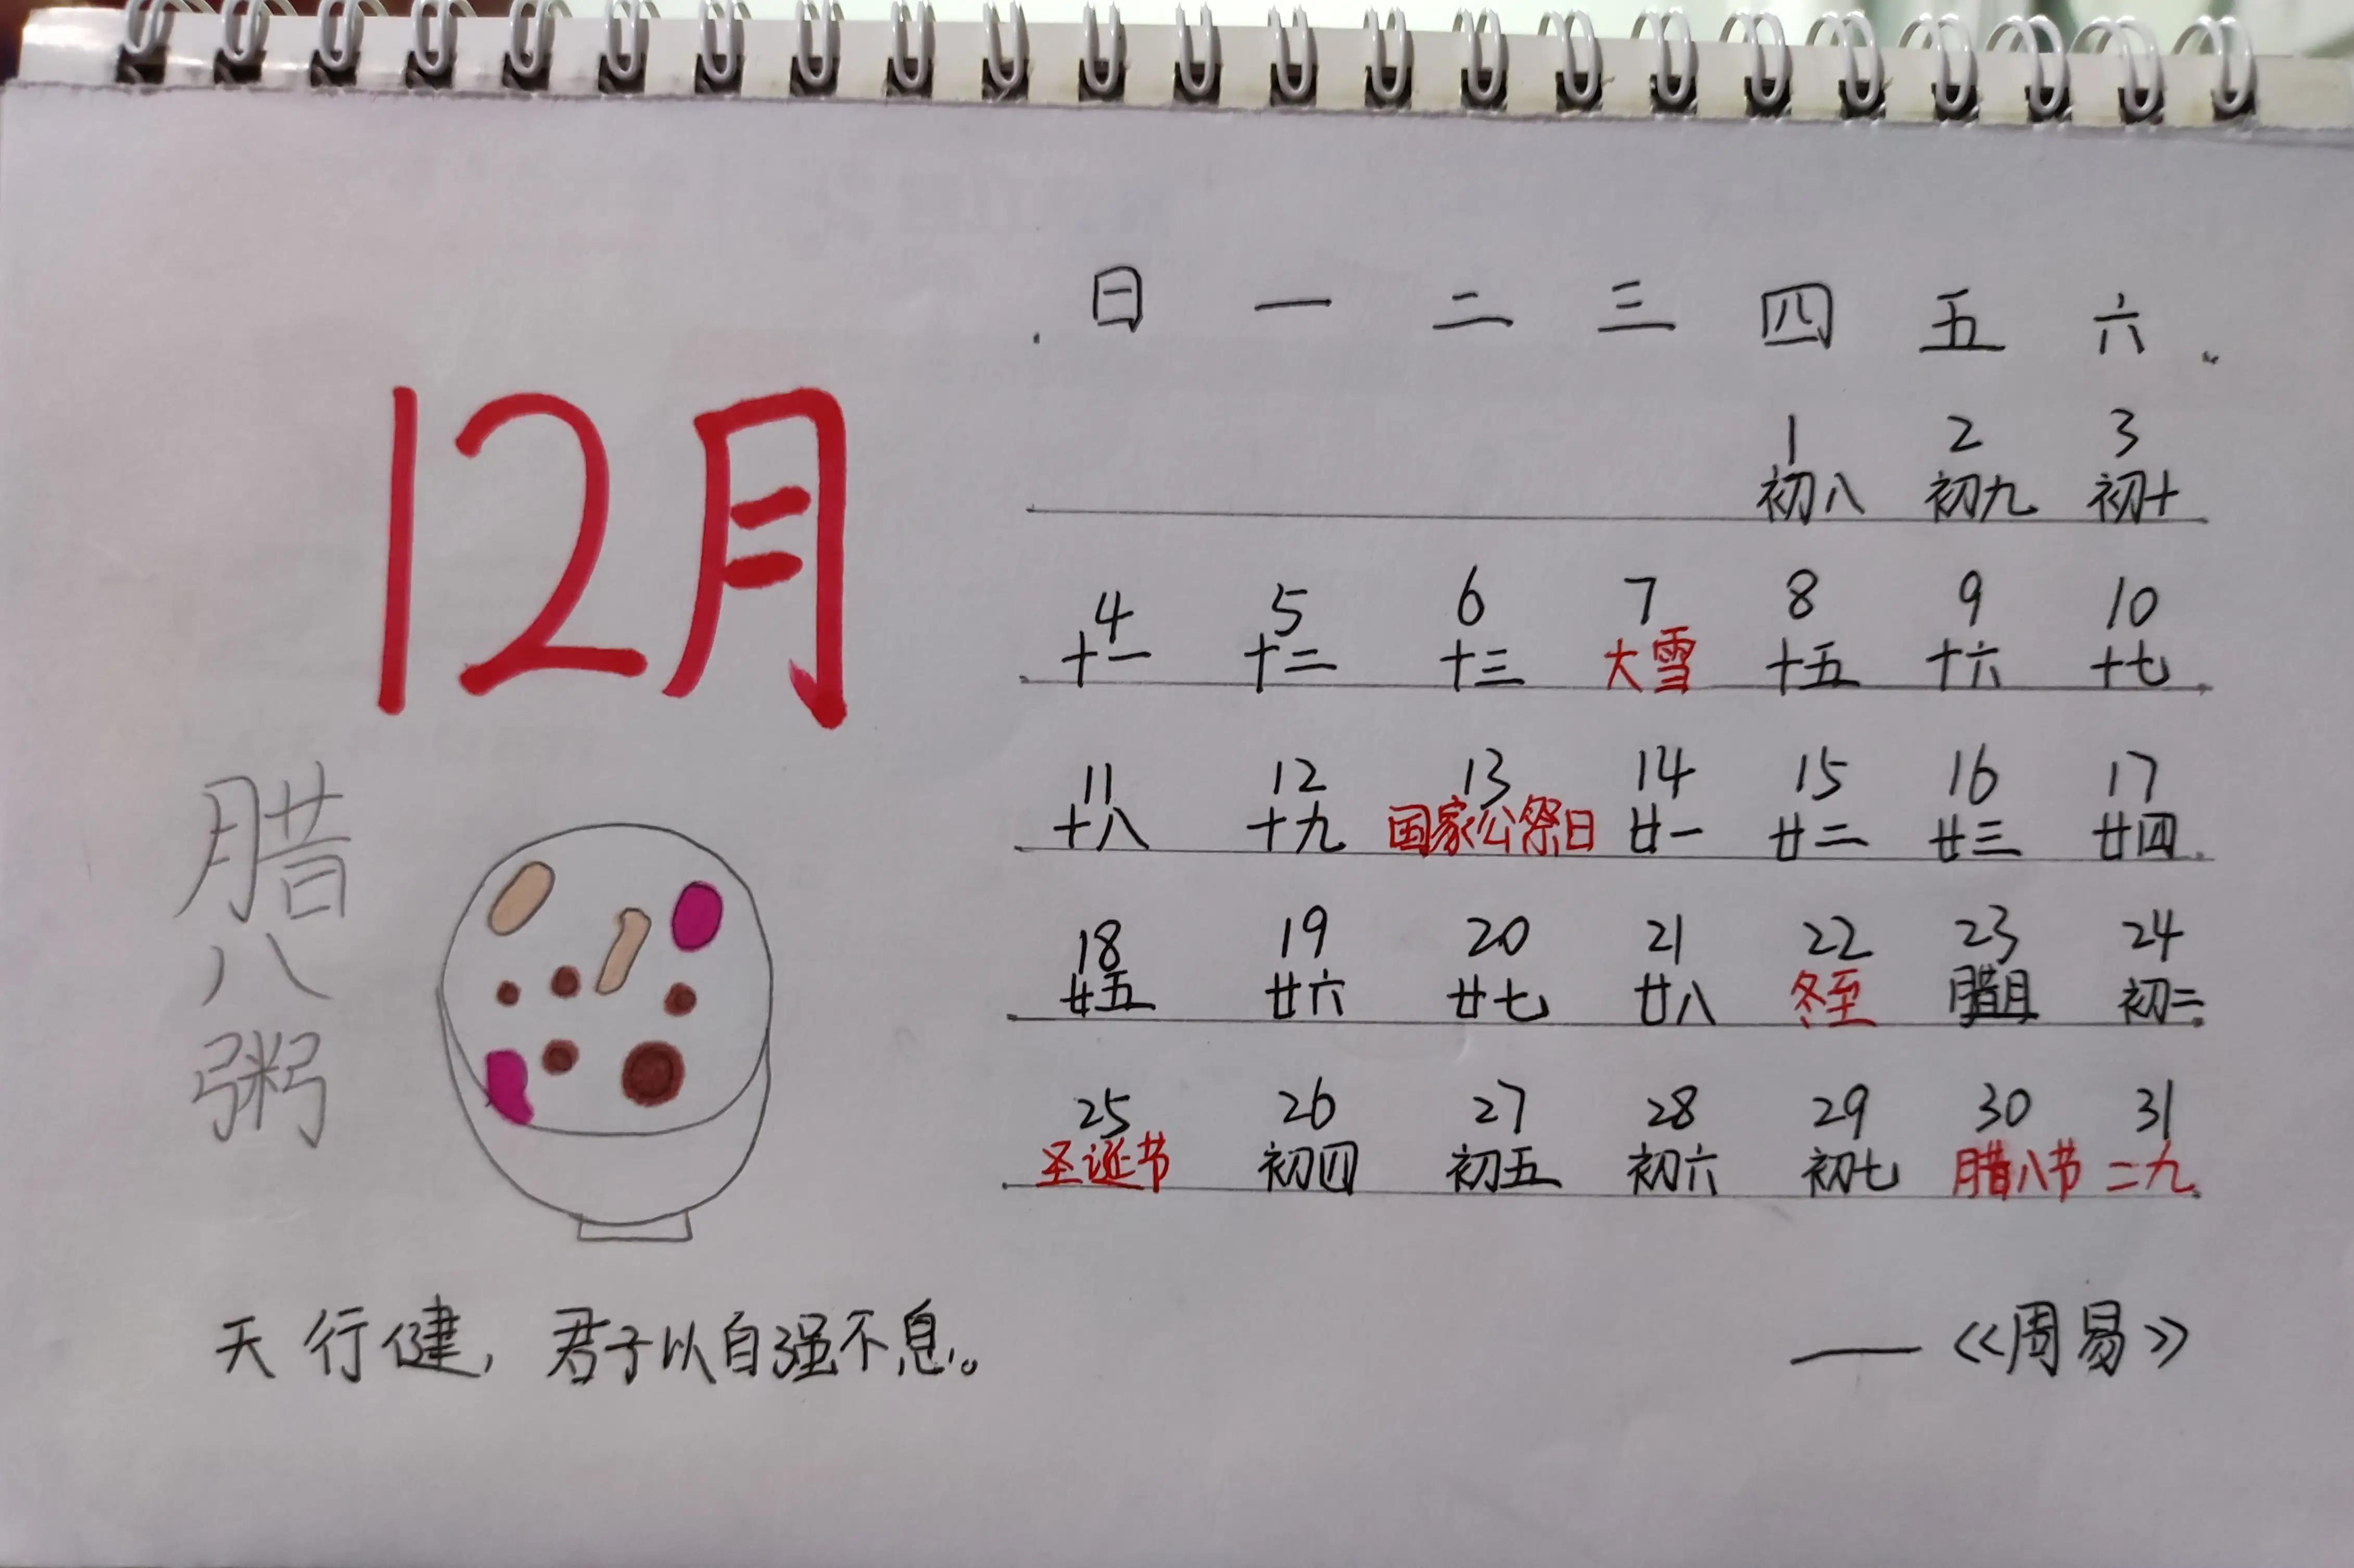 12月
腊八粥
日 一 二 三 四 五 六
1 2 3
初八 初九 初十
4 5 6 7 8 9 10
十一 十二 十三 大雪 十五 十六 十七
11 12 13 14 15 16 17
十八 十九 国家公祭日 廿一 廿二 廿三 廿四
18 19 20 21 22 23 24
廿五 廿六 廿七 廿八 冬至 腊月 初二
25 26 27 28 29 30 31
圣诞节 初四 初五 初六 初七 腊八节 二九
天行健，君子以自强不息。 ——《周易》